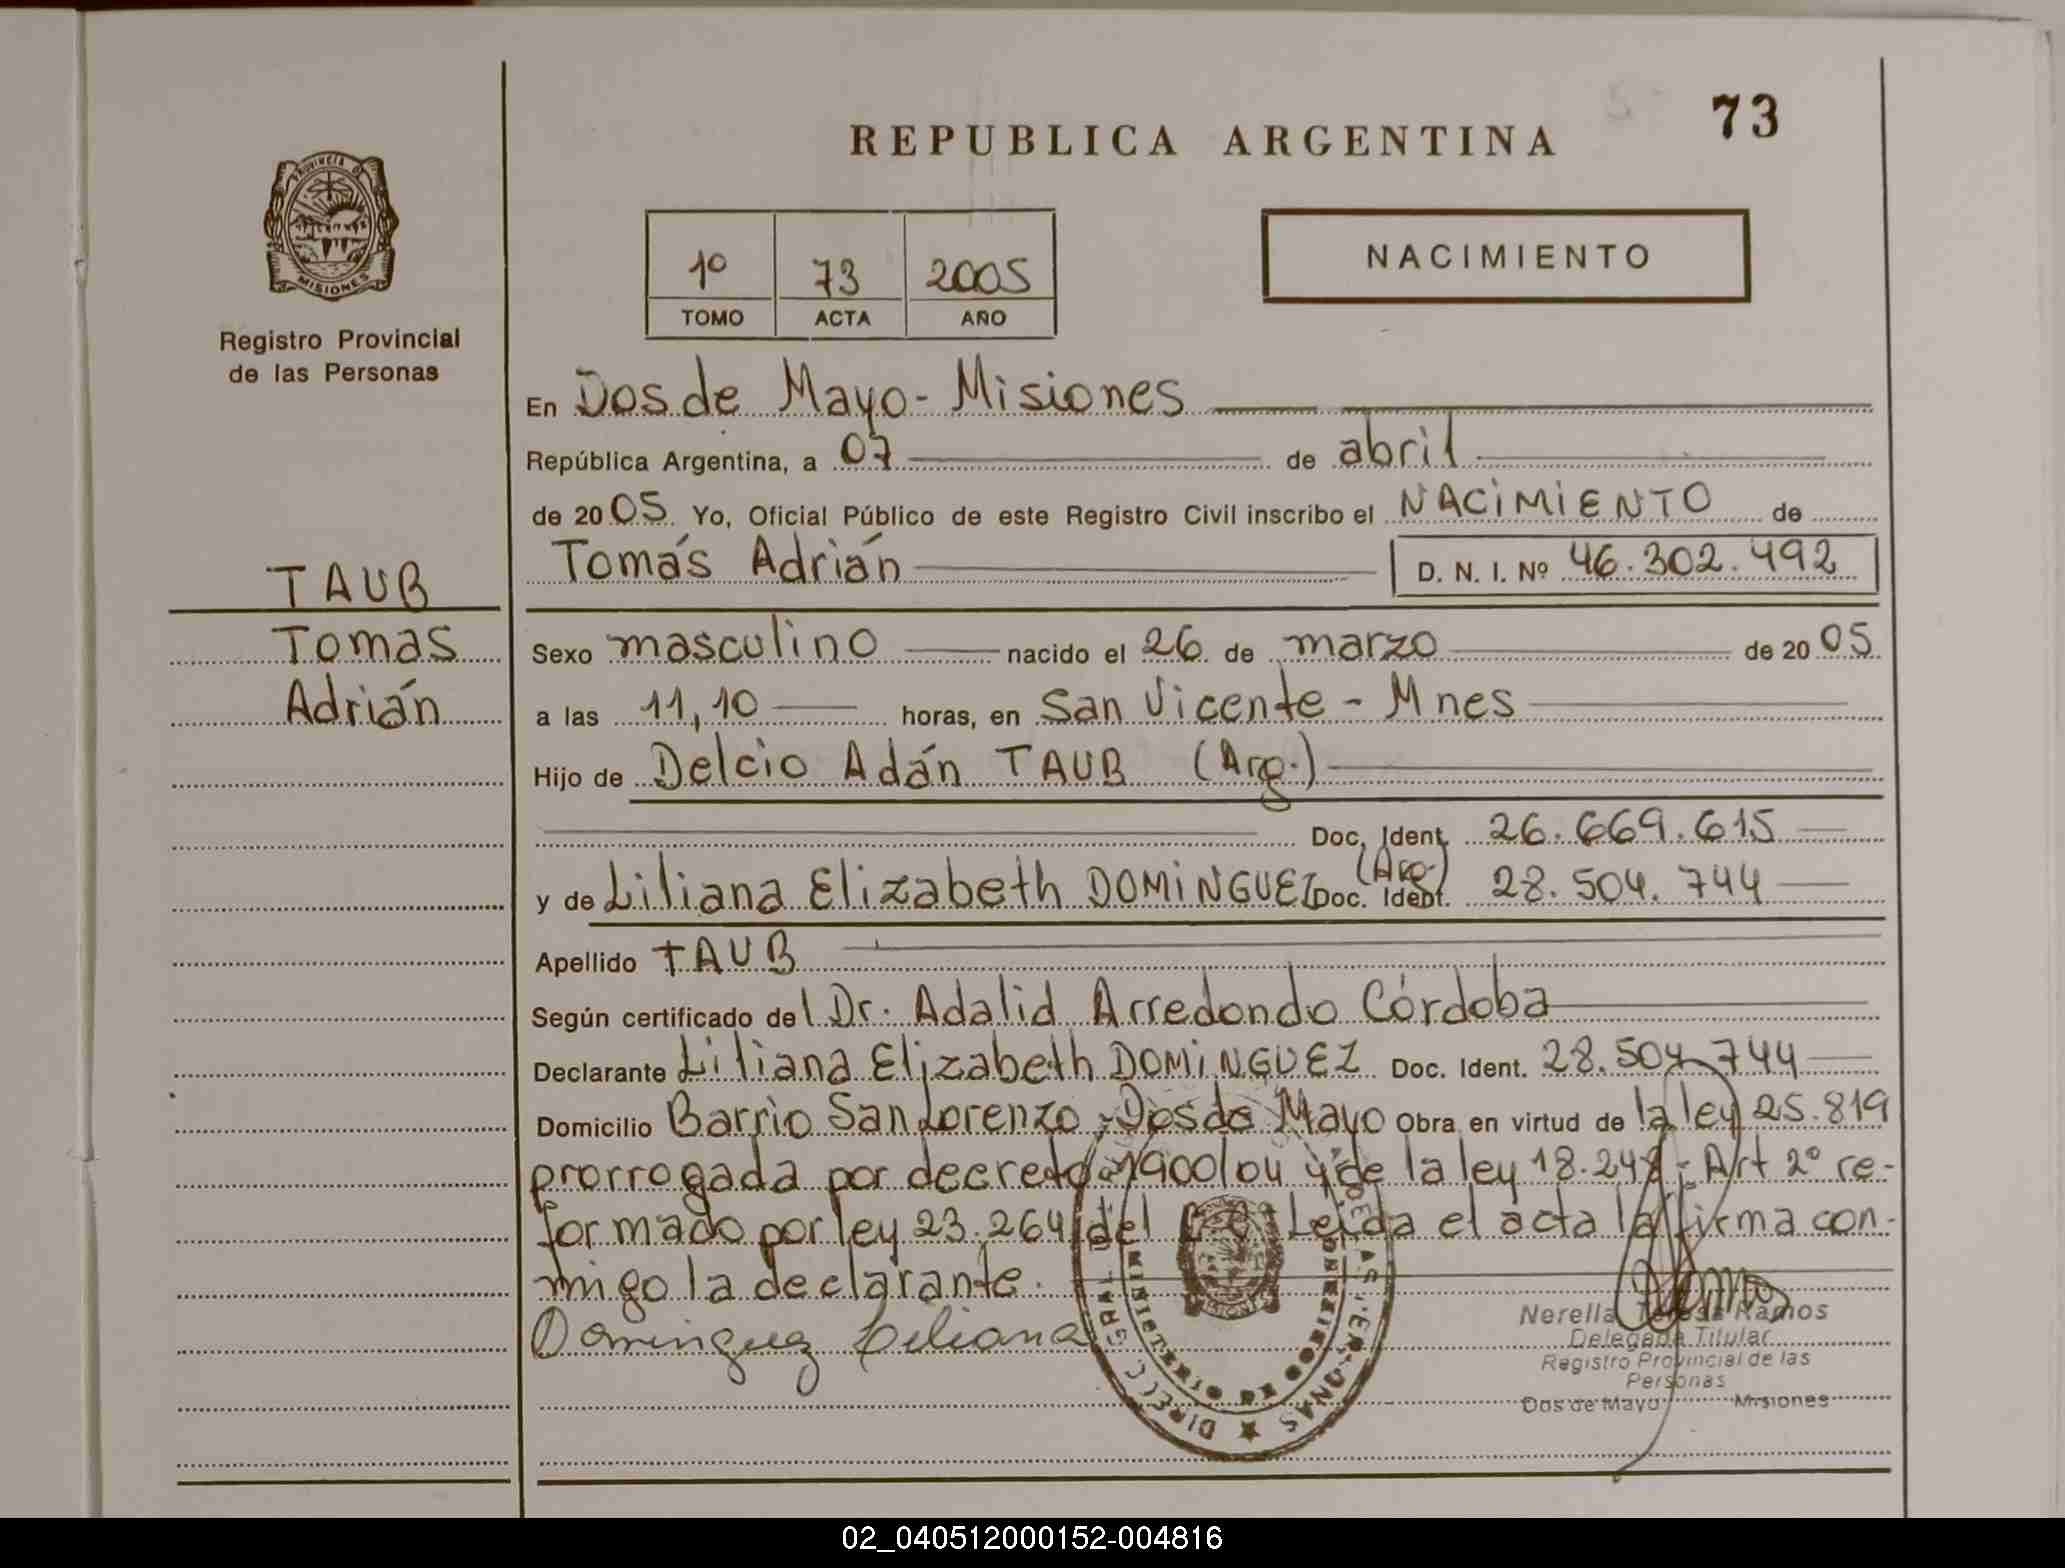 REPUBLICA ARGENTINA
73
PROVINCIA DE
MISIONES
Registro Provincial
de las Personas
1º 73 2005
TOMO ACTA AÑO
NACIMIENTO
En Dos de Mayo - Misiones
República Argentina, a 07 de abril
de 2005. Yo, Oficial Público de este Registro Civil inscribo el NACIMIENTO de
Tomás Adrián D. N. I. Nº 46.302.492
TAUB
Tomas
Adrián
Sexo masculino nacido el 26 de marzo de 2005.
a las 11,10 horas, en San Vicente - Mnes
Hijo de Delcio Adán TAUB (Arg.)
Doc. Ident. 26.669.615
y de Liliana Elizabeth DOMINGUEZ (Arg.) Doc. Ident. 28.504.744
Apellido TAUB
Según certificado del Dr. Adalid Arredondo Córdoba
Declarante Liliana Elizabeth DOMINGUEZ Doc. Ident. 28.504.744
Domicilio Barrio San Lorenzo, Dos de Mayo Obra en virtud de la ley 25.819
prorrogada por decreto 1900/04 y de la ley 18.248 - Art 2º re-
formado por ley 23.264 del Leida el acta la firma con-
migo la declarante.
Dominguez Liliana
Nerella Teresa Ramos
Delegada Titular
Registro Provincial de las
Personas
Dos de Mayo Misiones
MINISTERIO DE GOBIERNO
02_040512000152-004816